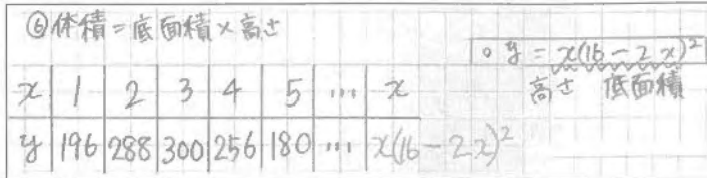 ⑥体積=底面積×高さ
○ y = x(16-2x)²
高さ 底面積
x 1 2 3 4 5 ... x
y 196 288 300 256 180 ... x(16-2x)²